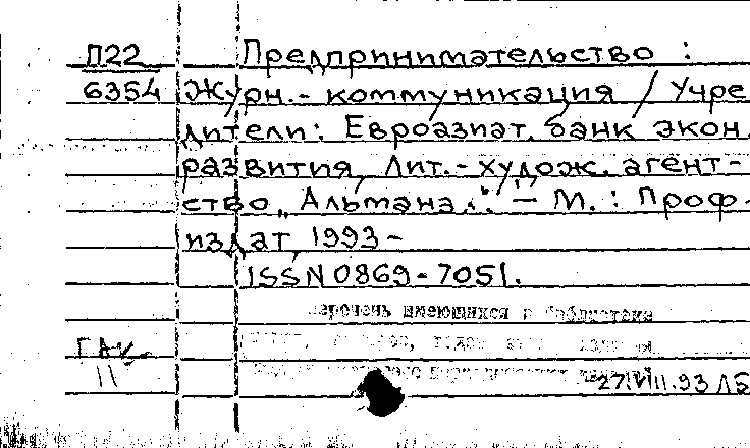 П22 Предпринимательство :
6354 Журн.- коммуникация / Учре
дители: Евроазиат. банк экон.
развития, Лит.-худож. агент-
ство „Альтана". - М. : Проф-
издат, 1993-
ISSN 0869-7051.
перечень имеющихся в библиотеке
ГАК
11
27.VIII.93 ЛБ